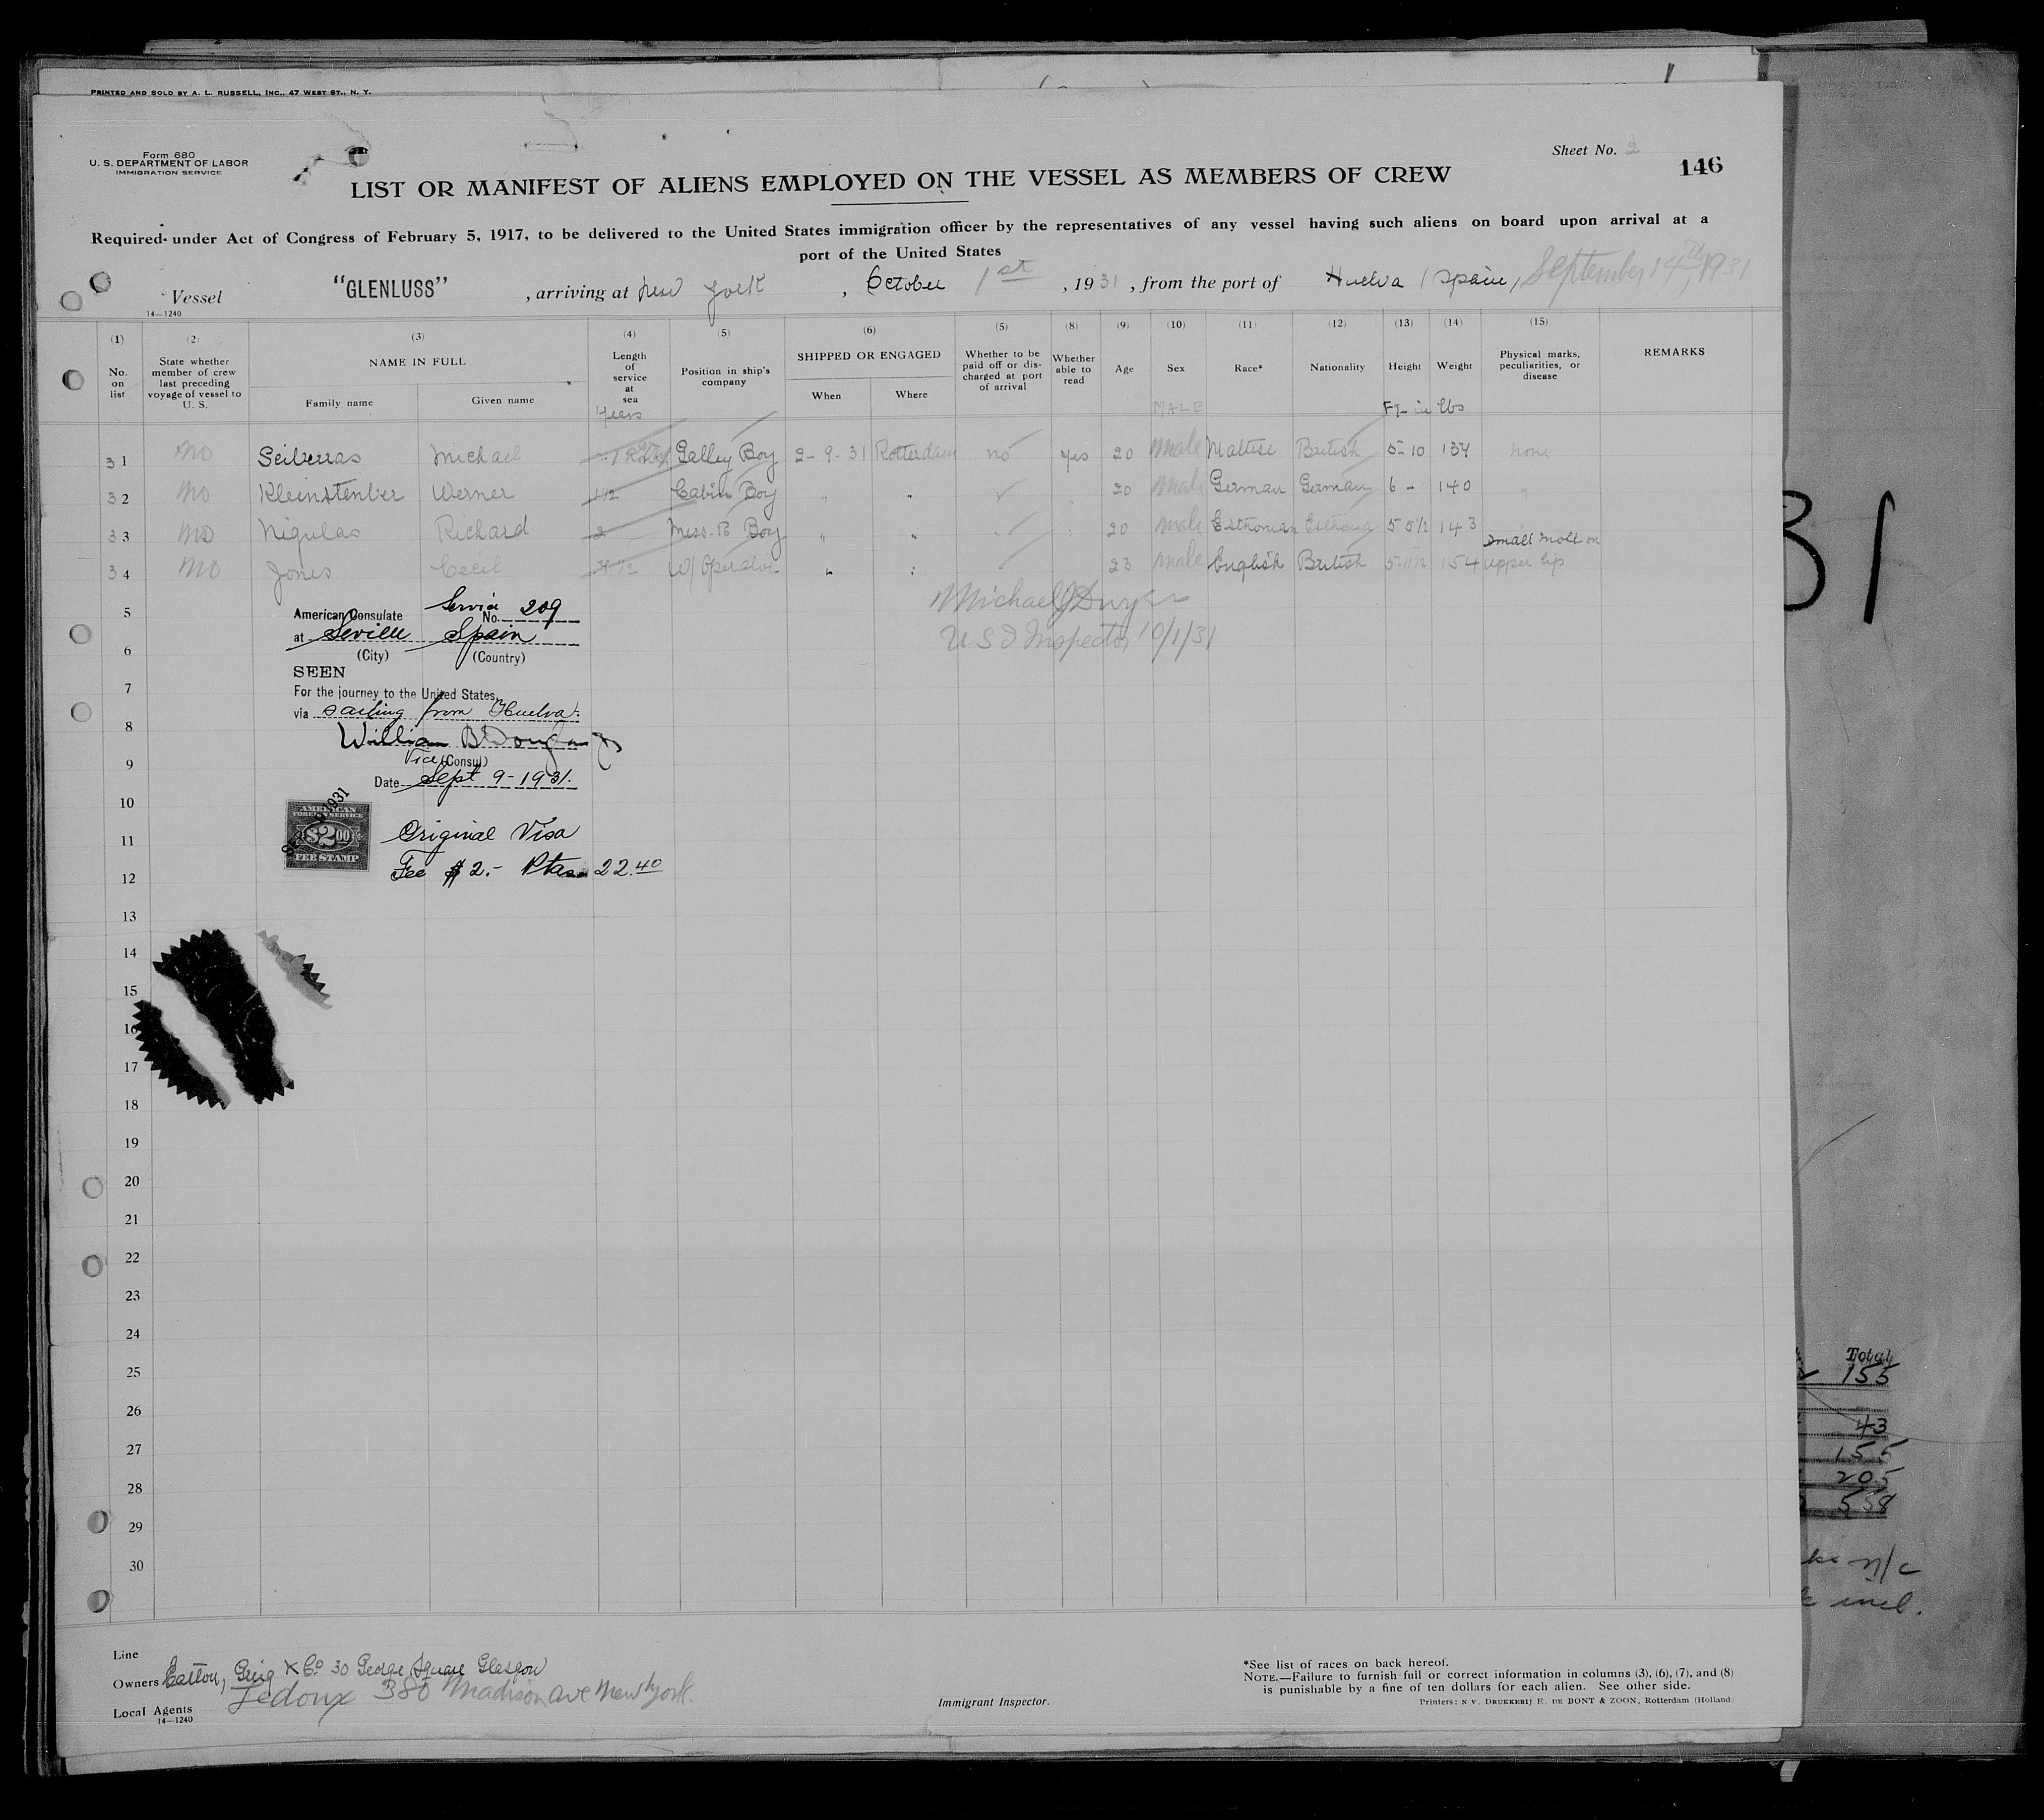 PRINTED AND SOLD BY A. L. RUSSELL, INC., 47 WEST ST., N. Y.
Form 680
U. S. DEPARTMENT OF LABOR
IMMIGRATION SERVICE
Sheet No. 2
146
LIST OR MANIFEST OF ALIENS EMPLOYED ON THE VESSEL AS MEMBERS OF CREW
Required under Act of Congress of February 5, 1917, to be delivered to the United States immigration officer by the representatives of any vessel having such aliens on board upon arrival at a
port of the United States
Vessel "GLENLUSS", arriving at new york, October 1st, 1931, from the port of Huelva / Spain, September 14th, 1931
14—1240
(1) (2) (3) (4) (5) (6) (5) (8) (9) (10) (11) (12) (13) (14) (15)
No. on list
State whether member of crew last preceding voyage of vessel to U. S.
NAME IN FULL
Family name
Given name
Length of service at sea
years
Position in ship's company
SHIPPED OR ENGAGED
When
Where
Whether to be paid off or discharged at port of arrival
Whether able to read
Age
Sex
MALE
Race*
Nationality
Height
Ft in
Weight
lbs
Physical marks, peculiarities, or disease
REMARKS
31 no Seiberras Michael Galley Boy 2-9-31 Rotterdam no yes 20 male Maltese British 5-10 134 none
32 no Kleinstenber Werner 1 1/2 Cabin Boy " " 20 male German German 6 - 140 "
33 no Nigulas Richard 2 Mess-R Boy " " 20 male Esthonian Esthonia 5 5 1/2 143
34 no Jones Cecil W/Operator " " 23 male English British 5-11 1/2 154 small mole on upper lip
5
6
7
8
9
10
11
12
13
14
15
16
17
18
19
20
21
22
23
24
25
26
27
28
29
30
American Consulate Servia No. 209
at Seville Spain
(City) (Country)
SEEN
For the journey to the United States,
via sailing from Huelva.
William B Douglas Jr
Vice (Consul)
Date Sept 9-1931.
AMERICAN
FOREIGN SERVICE
$2.00
FEE STAMP
1931
Original Visa
Fee $2.- Ptas 22.40
Michael J Dwyer
U S I Inspector 10/1/31
31
Total
155
43
155
205
558
n/c
incl.
Line
Owners Catton, Greig & Co 30 George Square Glasgow
Local Agents Ledoux 380 Madison ave New York.
14—1240
Immigrant Inspector.
*See list of races on back hereof.
NOTE.—Failure to furnish full or correct information in columns (3), (6), (7), and (8)
is punishable by a fine of ten dollars for each alien. See other side.
Printers: N.V. DRUKKERIJ E. DE BONT & ZOON, Rotterdam (Holland)